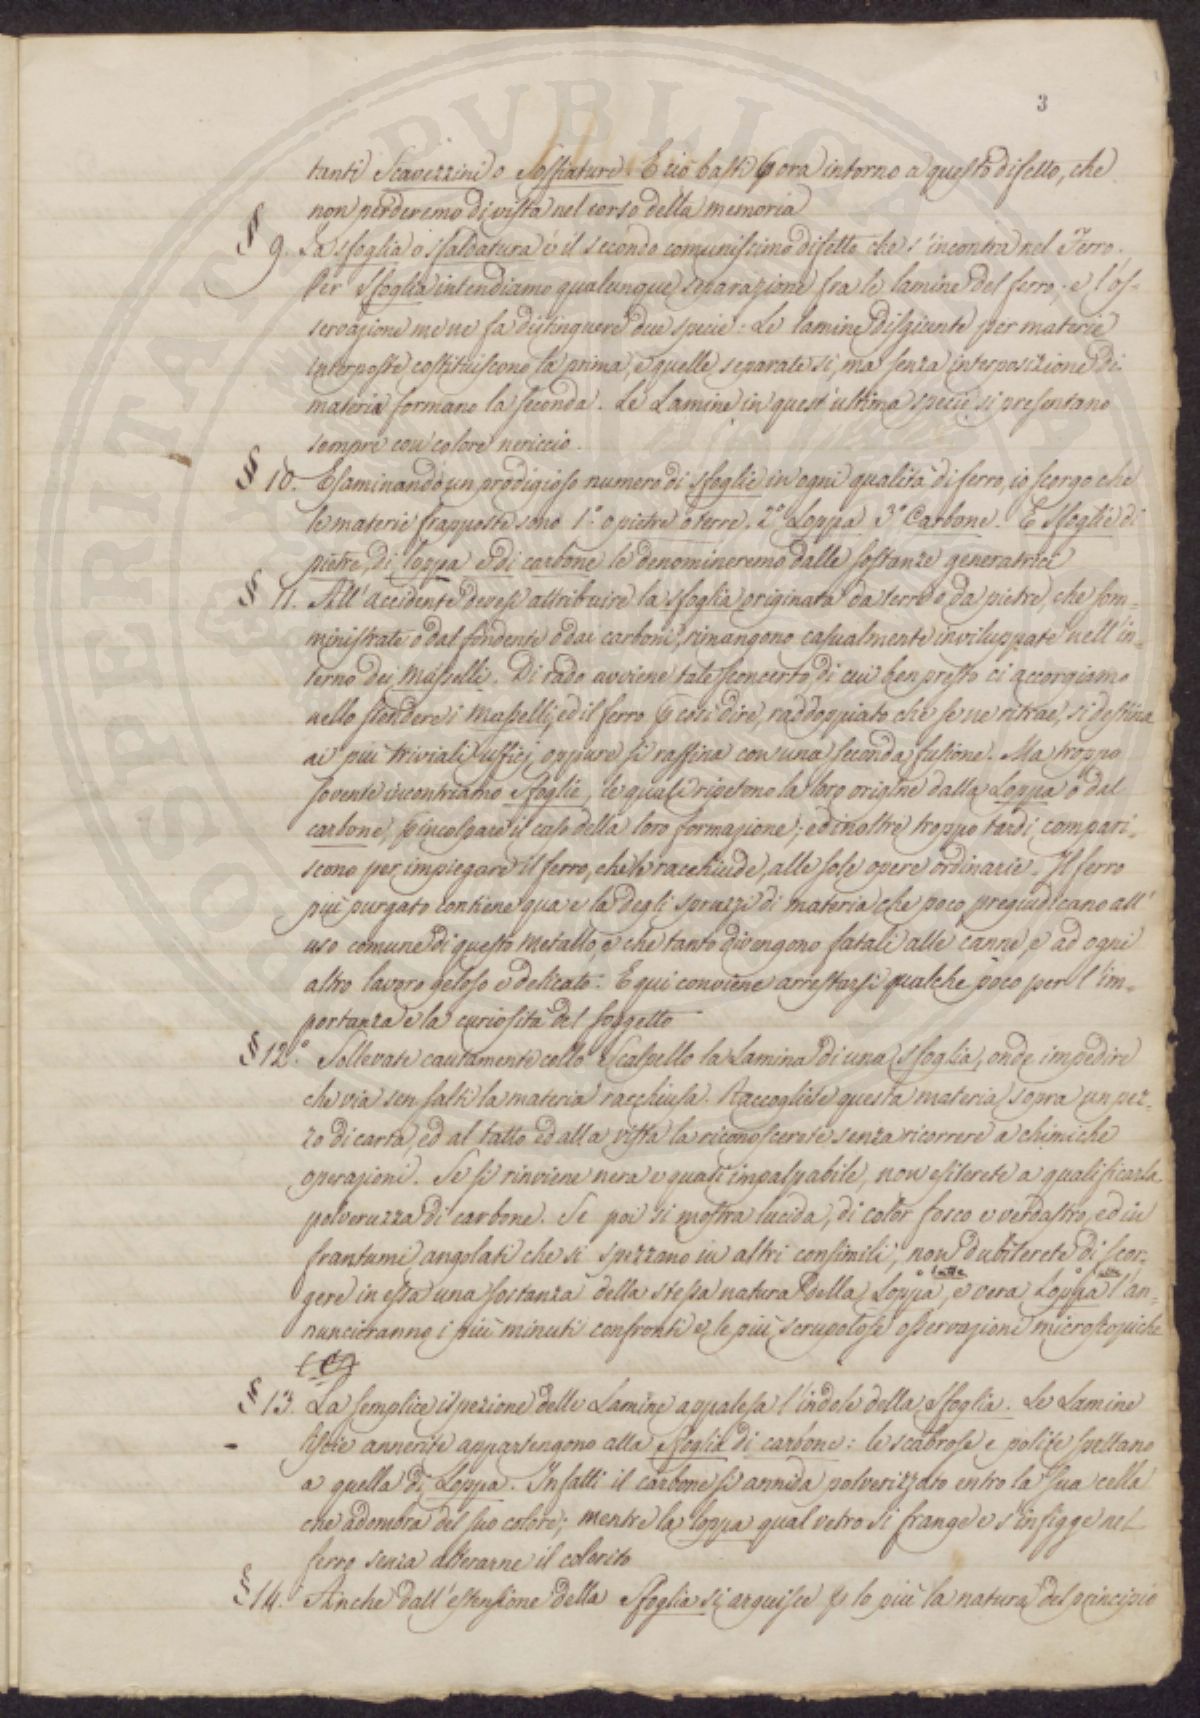 3
tanti Scavezzini o Soffiature. E ciò basti p ora intorno a questo difetto, che
non perderemo di vista nel corso della memoria
§ 9. La sfoglia o sfaldatura è il secondo comunissimo difetto che s'incontra nel Ferro.
Per Sfoglia intendiamo qualunque separazione fra le lamine del ferro, e l'os-
servazione me ne fa distinguere due specie: Le lamine disgiunte per materie
interposte costituiscono la prima, e quelle separate sì, ma senza interposizione di
materia formano la seconda. Le Lamine in quest'ultima specie si presentano
sempre con colore nericcio.
§ 10. Esaminando un prodigioso numero di sfoglie in ogni qualità di ferro, io scorgo che
le materie frapposte sono 1.° o pietre o terre. 2.° Loppa 3.° Carbone. E Sfoglie di
pietre, di loppa e di carbone le denomineremo dalle sostanze generatrici
§ 11. All'accidente devesi attribuire la sfoglia originata da terre o da pietre, che som=
ministrate o dal fondente o dai carboni, rimangono casualmente inviluppate nell'in=
terno dei Masselli. Di rado avviene tale sconcerto di cui ben presto ci accorgiamo
nello stendere i Masselli, ed il ferro p così dire, raddoppiato che se ne ritrae, si destina
ai più triviali ufficj, oppure si raffina con una seconda fusione. Ma troppo
sovente incontriamo Sfoglie, le quali ripetono la loro origine dalla Loppa o dal
carbone, p incolpare il caso della loro formazione; ed inoltre troppo tardi compari=
scono per impiegare il ferro, che le racchiude, alle sole opere ordinarie. Il ferro
più purgato contiene qua e là degli sprazzi di materia che poco pregiudicano all'
uso comune di questo metallo, e che tanto divengono fatali alle canne, e ad ogni
altro lavoro geloso e delicato: E qui conviene arrestarsi qualche poco per l'im=
portanza e la curiosità del soggetto
§ 12.° Sollevate cautamente collo Scalpello la Lamina di una sfoglia, onde impedire
che via sen salti la materia racchiusa. Raccogliete questa materia sopra un pez=
zo di carta, ed al tatto ed alla vista la riconoscerete senza ricorrere a chimiche
operazioni. Se si rinviene nera e quasi impalpabile, non esiterete a qualificarla
polveruzza di carbone. Se poi si mostra lucida, di color fosco e verdastro, ed in
frantumi angolati che si spezzano in altri consimili, non dubiterete di scor=
gere in essa una sostanza della stessa natura della Loppa, e vera Loppa l'an=
nuncieranno i più minuti confronti e le più scrupolose osservazioni microscopiche
§ 13. La semplice ispezione delle Lamine appalesa l'indole della Sfoglia. Le Lamine
liscie annerite appartengono alla sfoglia di carbone: le scabrose e polite spettano
a quella di Loppa. Infatti il carbone si annida polverizzato entro la sua cella
che adombra del suo colore; mentre la loppa qual vetro si frange e s'infigge nel
ferro senza alterarne il colorito
§ 14. Anche dall'estensione della Sfoglia si arguisce p lo più la natura del principio